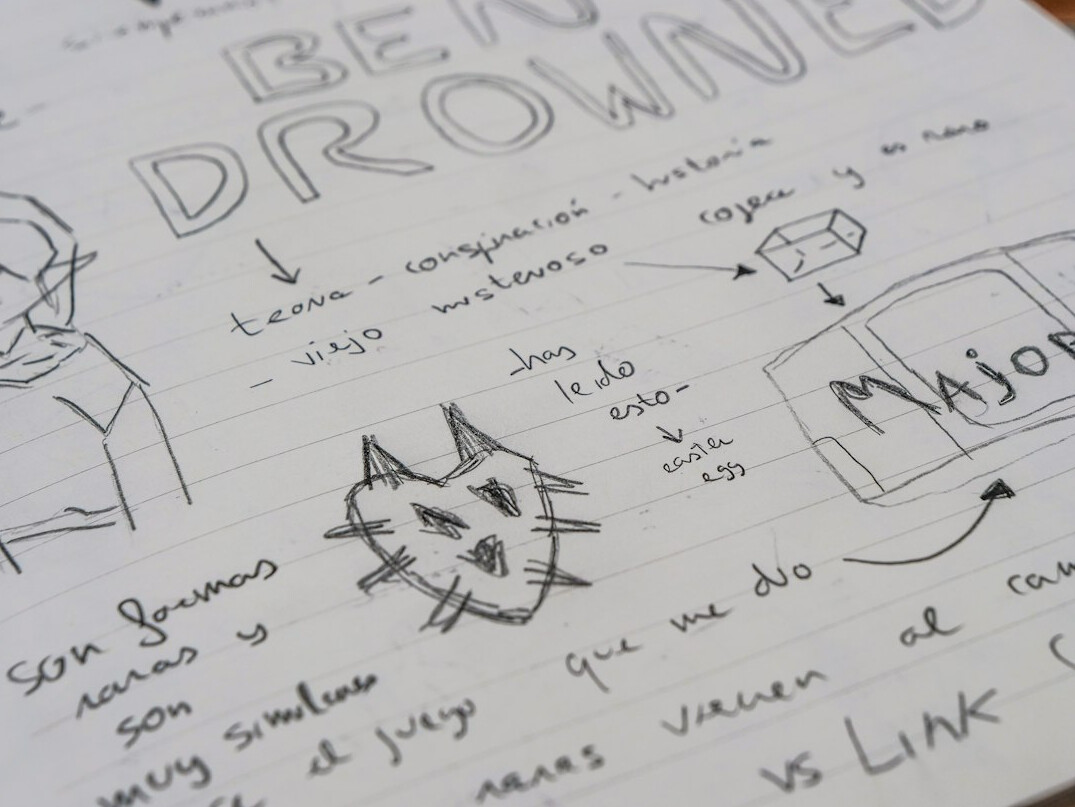 BEN
DROWNED
teoria - conspiración - historia
- viejo misterioso
cojera y es raro
-has
leido
esto-
easter
egg
MAJOR
son formas
raras y
son
muy similares
el juego
que me dio
raras vienen al
vs LINK